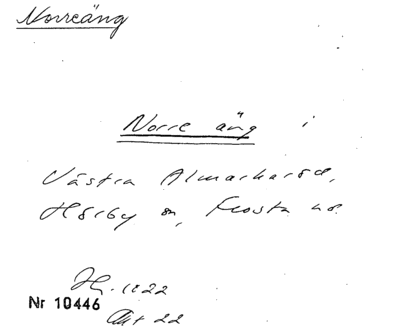 Norreäng
Norre äng i
Västra Almarharöd,
Hörby sn, Frosta hd.
Nr 10446
Akt 22